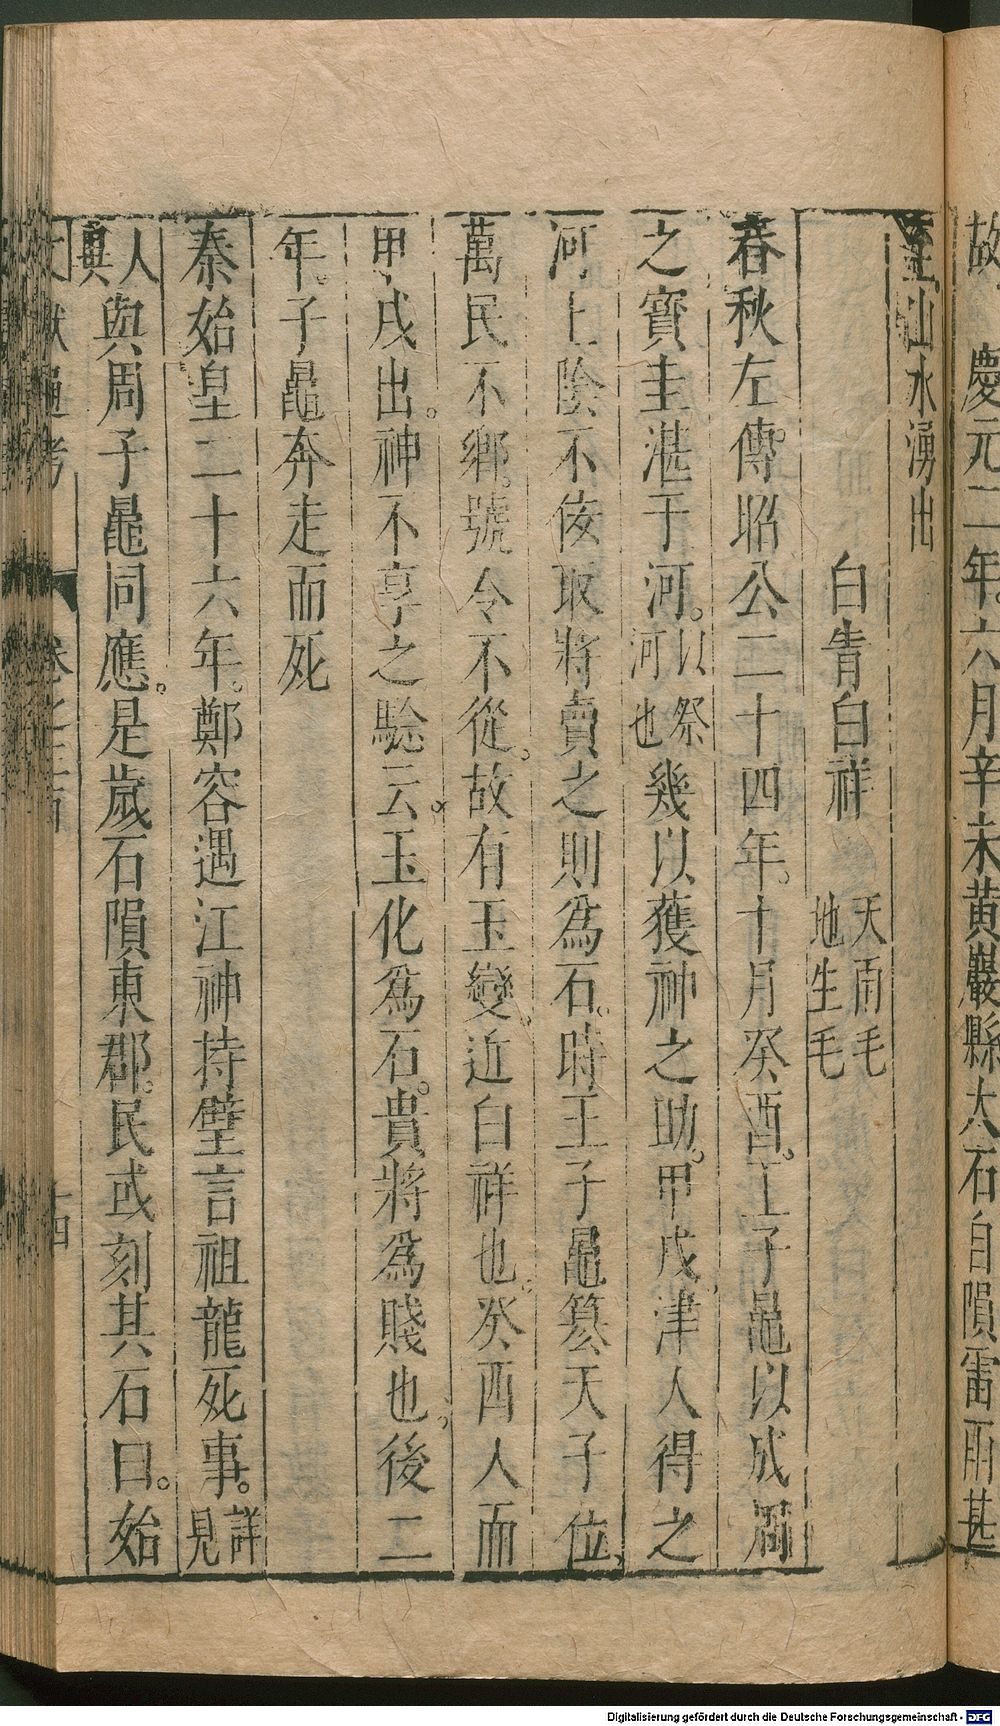 故 慶元二年。六月辛未黃巖縣大石自隕雷雨甚
至山水湧出
白眚白祥 天雨毛 地生毛
春秋左傳昭公二十四年。十月癸酉。王子鼂以成周
之寶圭湛于河。以祭河也幾以獲神之助。甲戌。津人得之
河上陰不佞取將賣之則爲石。時王子鼂篡天子位。
萬民不鄉。號令不從。故有玉變近白祥也。癸酉人而
甲戌出。神不享之驗云。玉化爲石。貴將爲賤也。後二
年。子鼂奔走而死
秦始皇二十六年。鄭容遇江神持璧言祖龍死事。詳見
人異與周子鼂同應。是歲石隕東郡。民或刻其石曰。始
文獻通考 卷之三百 十四
Digitalisierung gefördert durch die Deutsche Forschungsgemeinschaft - DFG